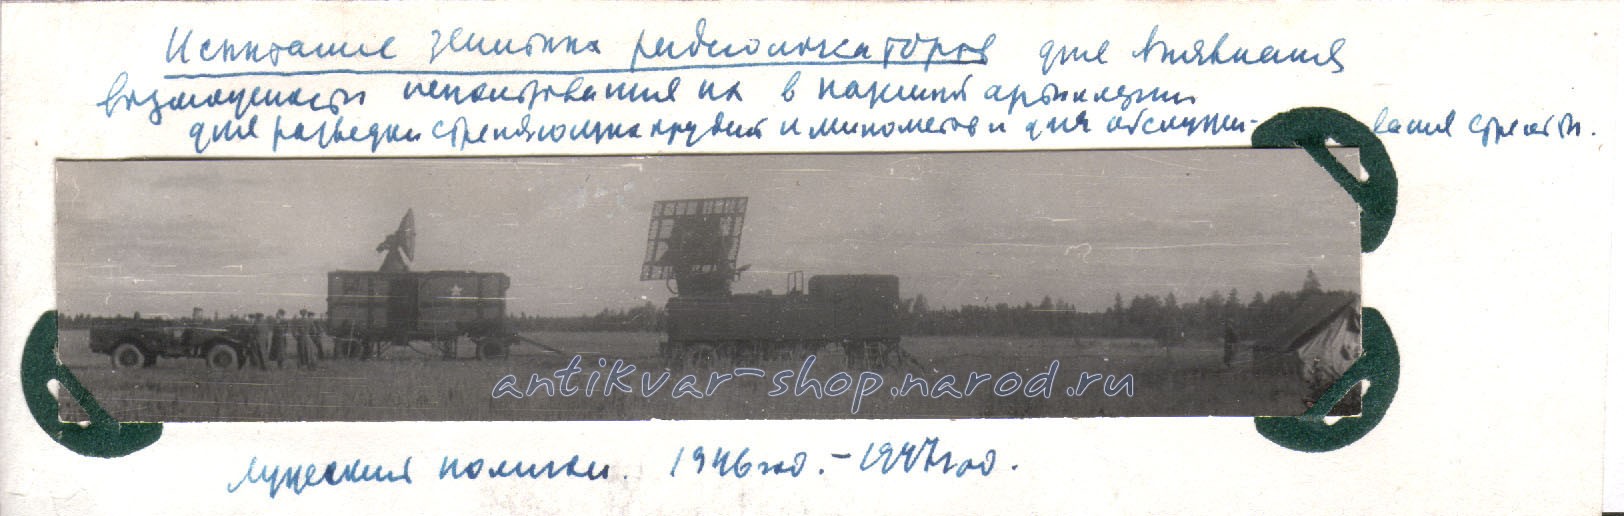 Испытание зенитных радиолокаторов для выявления
возможности использования их в наземной артиллерии
для разведки стреляющих орудий и минометов и для обслужи- вания стрельбы.
antikvar-shop.narod.ru
Лужский полигон. 1946 год. - 1947 год.